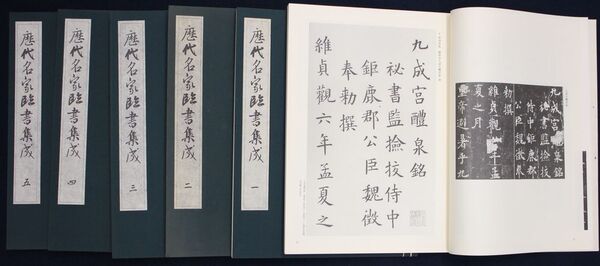 歴代名家臨書集成 五
歴代名家臨書集成 四
歴代名家臨書集成 三
歴代名家臨書集成 二
歴代名家臨書集成 一
九成宮醴泉銘
祕書監撿挍侍中
鉅鹿郡公臣魏徵
奉勅撰
維貞觀六年孟夏之
九成宮醴泉銘
祕書監撿挍
侍中鉅鹿郡
公臣魏徵奉
勅撰
維貞觀六年孟
夏之月
皇帝避暑乎九